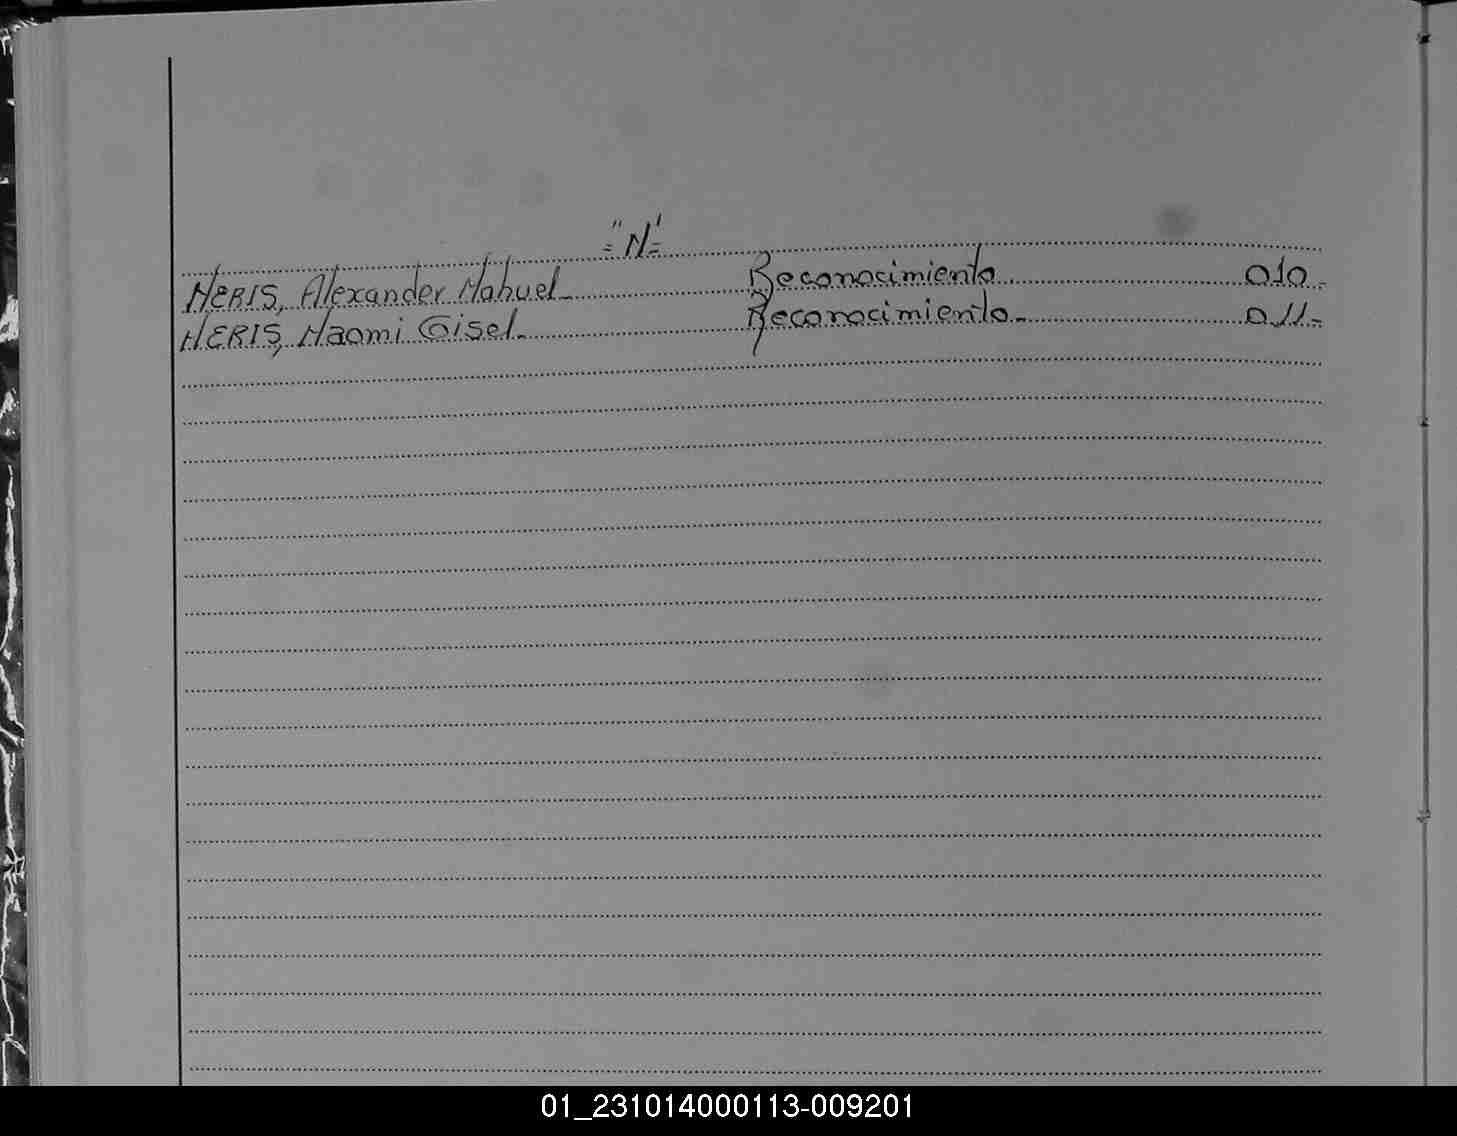 ="N"=
NERIS, Alexander Nahuel- Reconocimiento 010-
NERIS, Naomi Gisel- Reconocimiento- 011-
01_231014000113-009201